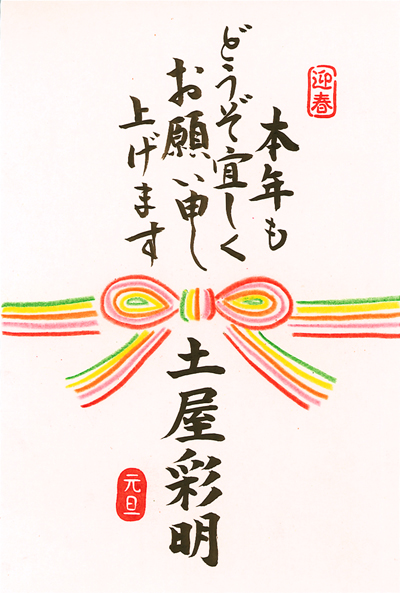 迎春
本年も
どうぞ宜しく
お願い申し
上げます
土屋彩明
元旦